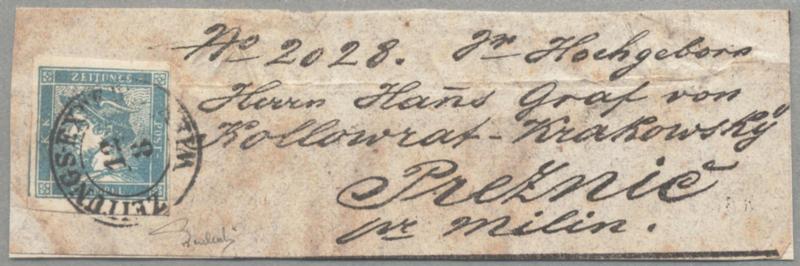 No 2028. Sr Hochgeborn
Herrn Hans Graf von
Kollowrat-Krakowský
Prežnic
pr Milin.
ZEITUNGS-
POST-
K
WIEN
ZEITUNGS-EXPED